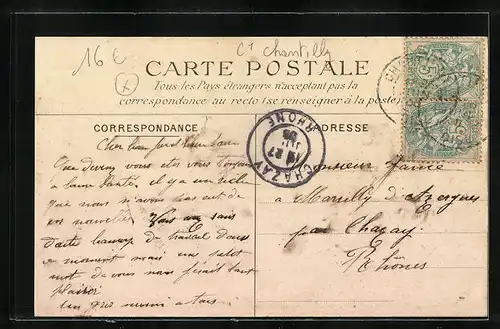 16 €
Ct Chantilly
CARTE POSTALE
Tous les Pays étrangers n'acceptant pas la
correspondance au recto (se renseigner à la poste)
CORRESPONDANCE
ADRESSE
CHAZAY
RHONE
Cher
Que devenez vous êtes vous toujours
a bonne santé, il y a un siècle
que nous n'avons pas eut de
vos nouvelles Vous avez sans
doute beaucoup de travail dans
ce moment mais un petit
mot de vous nous ferait tant
plaisir
Un gros mimi a tous
Monsieur
a Marcilly d'Azergues
par Chazay
Rhônes